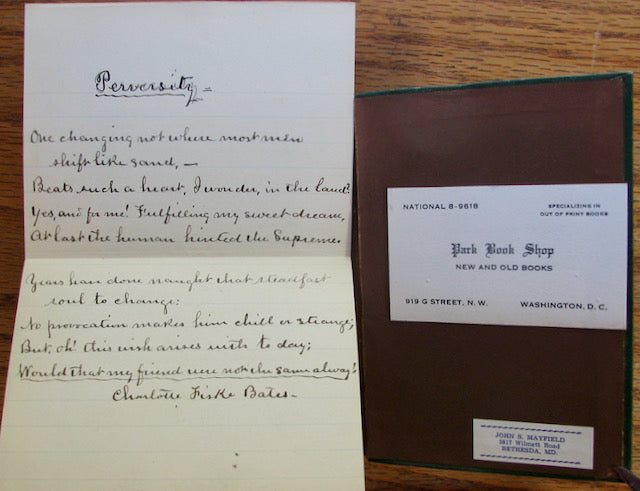 Perversity—
One changing not where most men
shift like sand,—
Beats such a heart, I wonder, in the land?
Yes, and for me! Fulfilling my sweet dream,
At last the human hinted the Supreme.
Years have done naught that steadfast
soul to change:
No provocation makes him chill or strange;
But, oh! this wish arises with to day;
Would that my friend were not the same alway!
Charlotte Fiske Bates—
NATIONAL 8-9618
SPECIALIZING IN
OUT OF PRINT BOOKS
Park Book Shop
NEW AND OLD BOOKS
919 G STREET, N. W.
WASHINGTON, D. C.
JOHN S. MAYFIELD
5817 Wilmett Road
BETHESDA, MD.